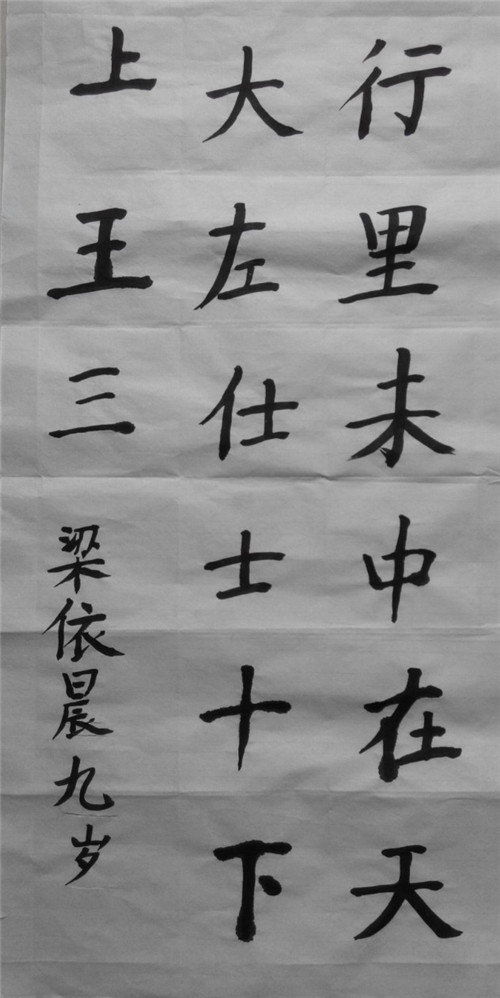 行里未中在天
大左仕士十下
上王三
梁依晨九岁